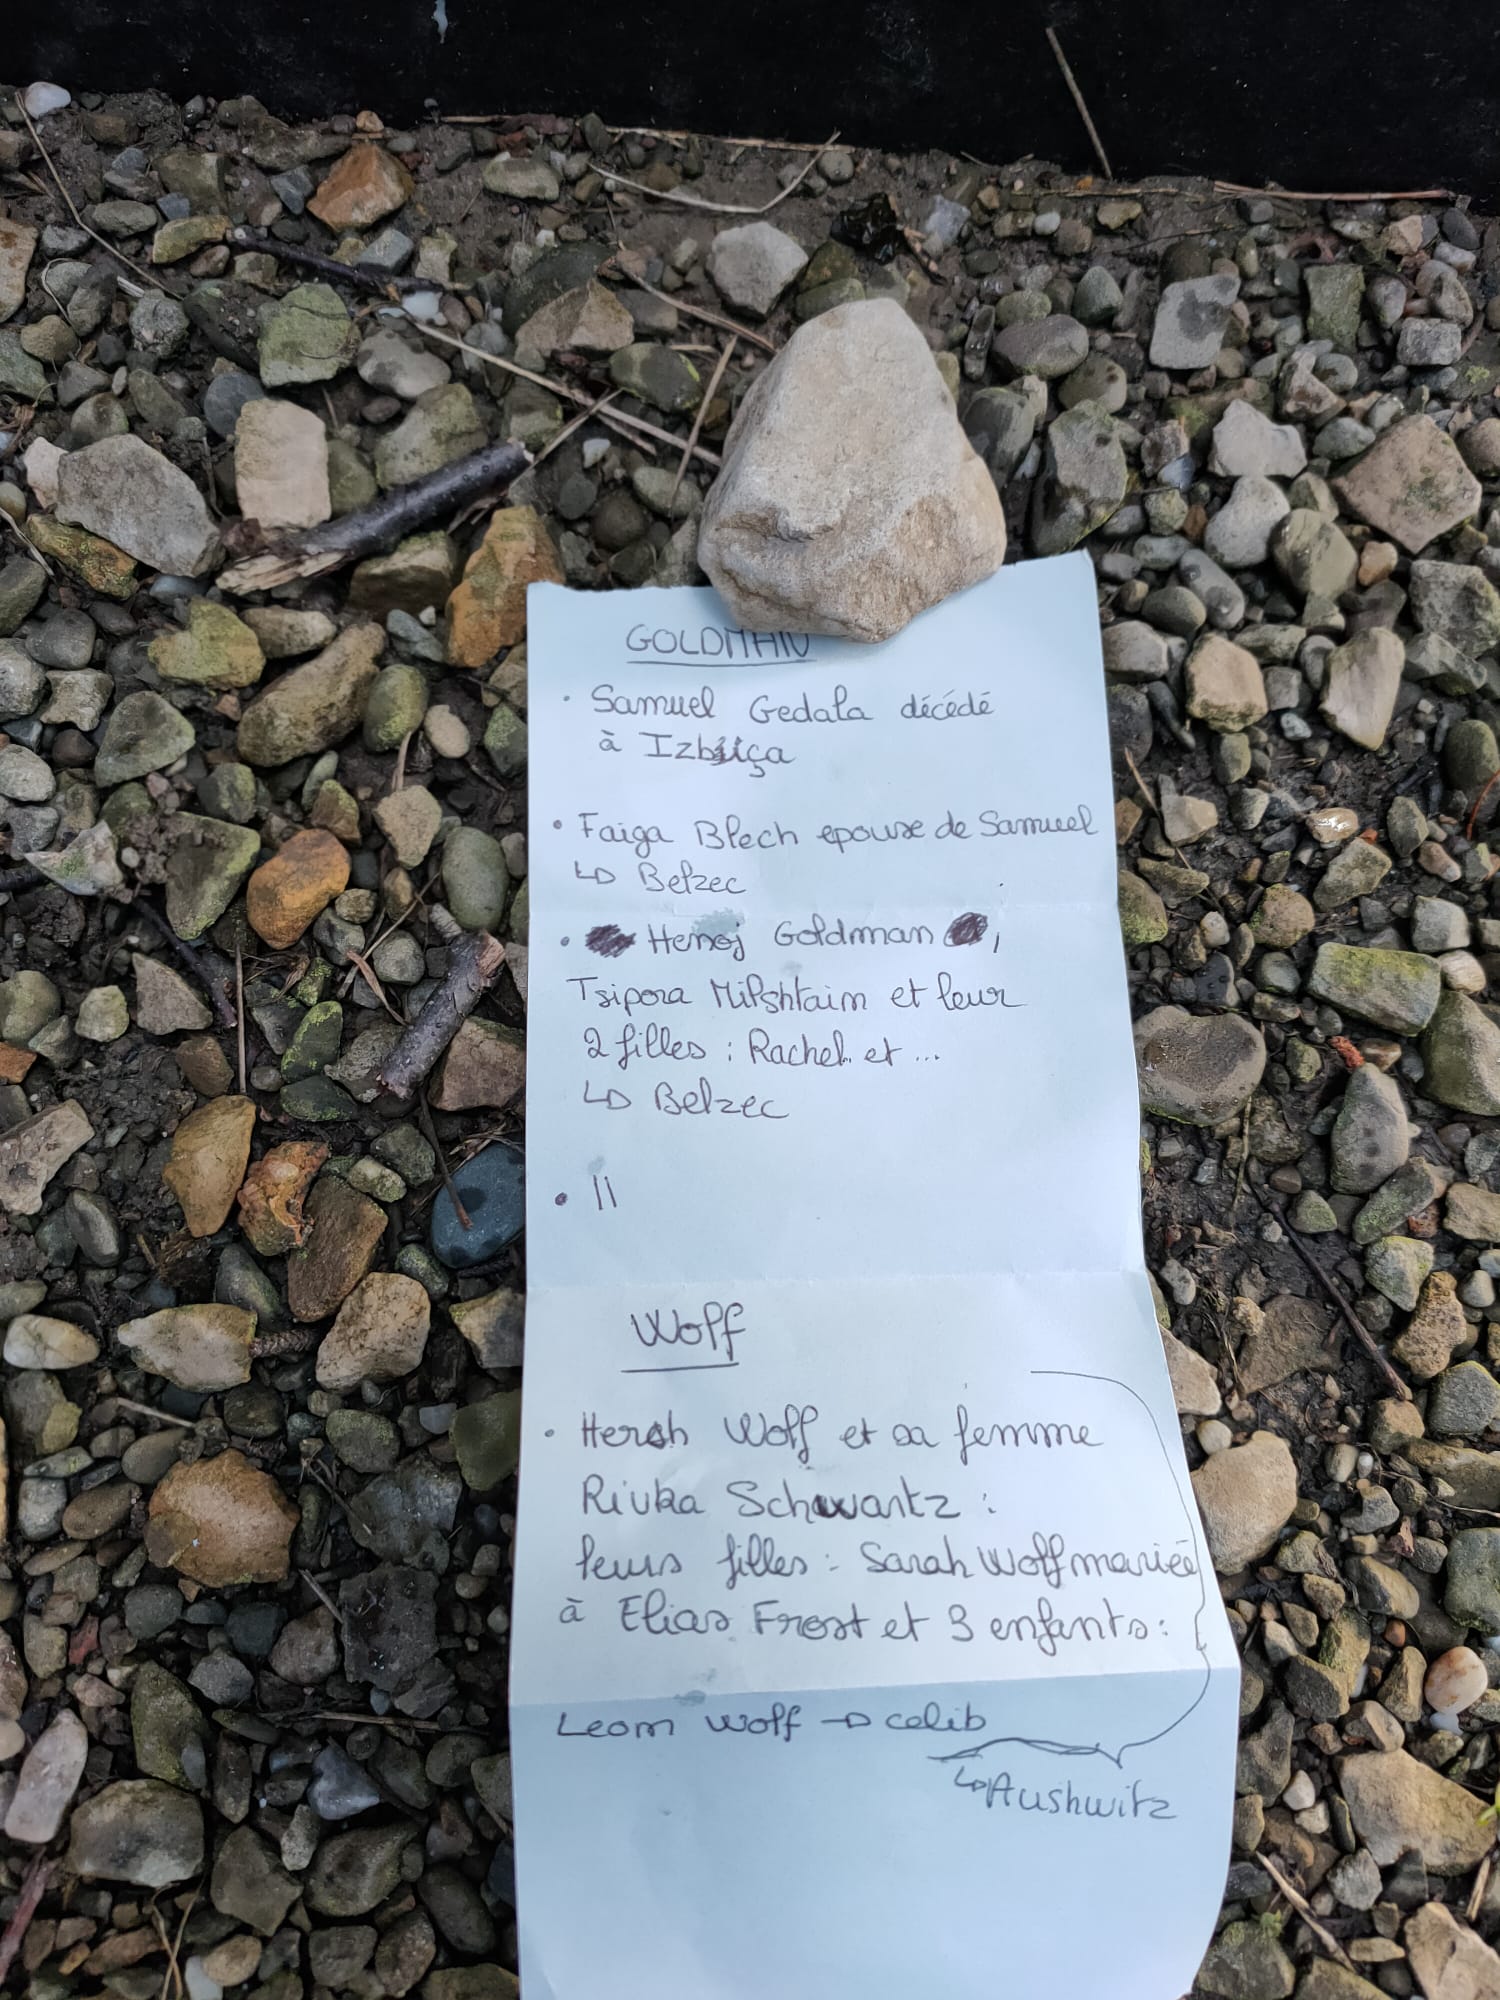 GOLDMAN
• Samuel Gedala décédé
à Izbiça
• Faiga Blech epouse de Samuel
↳ Belzec
• Henoj Goldman ,
Tsipora Milshtaim et leur
2 filles : Rachel et ...
↳ Belzec
• ||
Wolff
• Hersh Wolff et sa femme
Rivka Schwartz :
leurs filles : Sarah Wolff mariée
à Elias Frost et 3 enfants :
Leom Wolff → celib
↳ Aushwitz